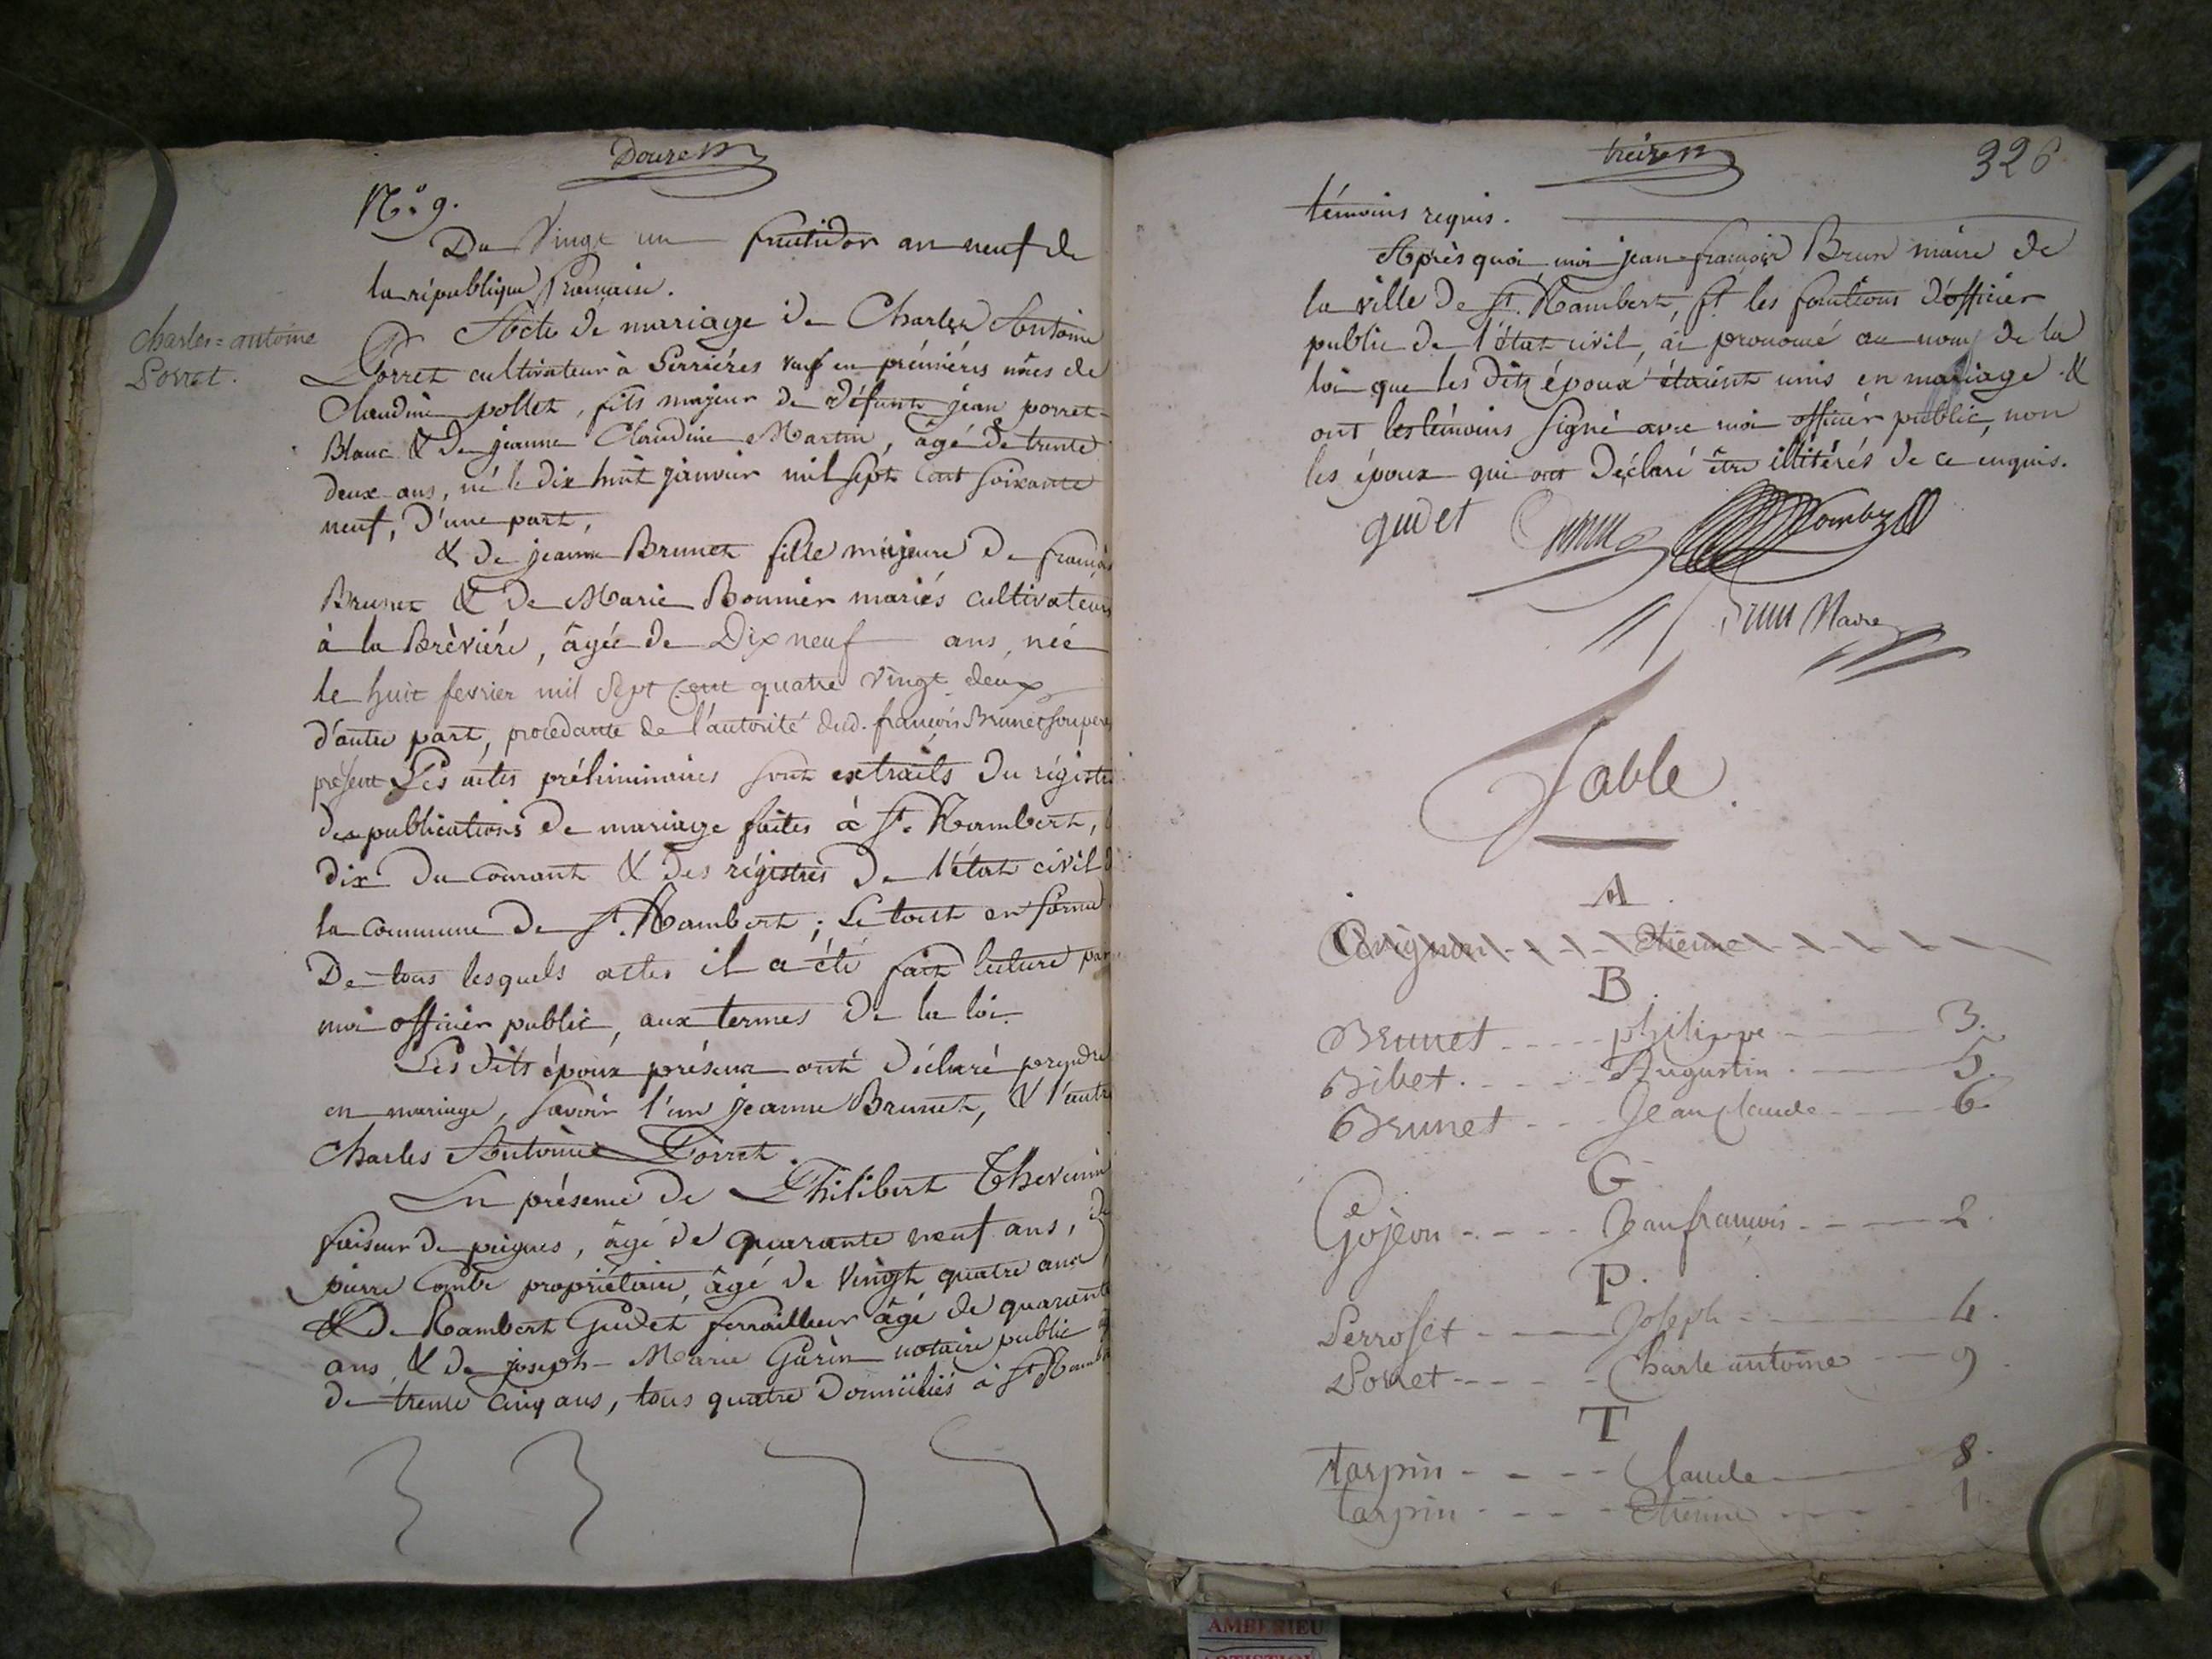 Douze
N.° 9.
Du Vingt un fructidor an neuf de
la république française.
Acte de mariage de Charles Antoine
Porret cultivateur à Serriéres veuf en prémiéres nôces de
Charles=antoine
Porret.
Claudine pollet, fils majeur de défunt jean porret-
Blanc & de jeanne Claudine Martin, âgé de trente
deux ans, né le dix huit janvier mil sept cent soixante
neuf, d'une part,
& de jeanne Brunet fille majeure de françois
Brunet & de Marie Bonnier mariés cultivateurs
à la Brèviére, âgée de Dix neuf ans, née
le huit fevrier mil sept cent quatre vingt deux
d'autre part, procedante de l'autorité dud. françois Brunet son pere
présent Les actes préliminaires sont extraits du régistre
des publications de mariage faites à St. Rambert,
dix du courant & des régistres de l'état civil
la commune de St. Rambert; Le tout en forme
De tous lesquels actes il a été fait lecture par
moi officier public, aux termes de la loi.
Les dits époux présens ont déclaré prendre
en mariage, savoir l'un jeanne Brunet, & l'autre
Charles Antoine Porret.
En présence de Philibert Thevenin
faiseur de peignes, âgé de quarante neuf ans, de
pierre Combe propriétaire, âgé de Vingt quatre ans
& de Rambert Gudet ferrailleur âgé de quarante
ans & de joseph-Marie Garin notaire public
de trente cinq ans, tous quatre domiciliés à St Rambert
treize
326
témoins requis.
Après quoi, moi jean françois Brun maire de
la ville de St. Rambert, ft les fonctions d'officier
public de l'état civil, ai prononcé au nom de la
loi que les dits époux étaient unis en mariage &
ont les témoins signé avec moi officier public, non
les époux qui ont déclaré être illitérés de ce enquis.
gudet Combe
Brun Maire
Table.
A.
Avignon Etienne
B.
Brunet - - - - philippe - - - 3.
Bibet. - - - - Augustin. - - - 5.
Brunet - - - Jean claude - - - 6.
G
Gojeon - - - - Jean françois - - - 2.
P.
Perroset - - - Joseph - - - 4.
Porret - - - - Charle antoine - - - 9.
T
tarpin - - - - Claude - - - 8.
tarpin - - - - Etienne - - - 1.
AMBERIEU